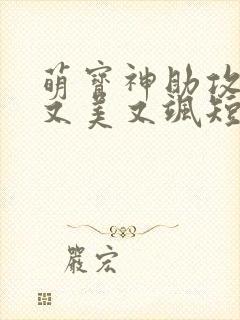 萌寶神助攻
又美又颯短
嚴宏